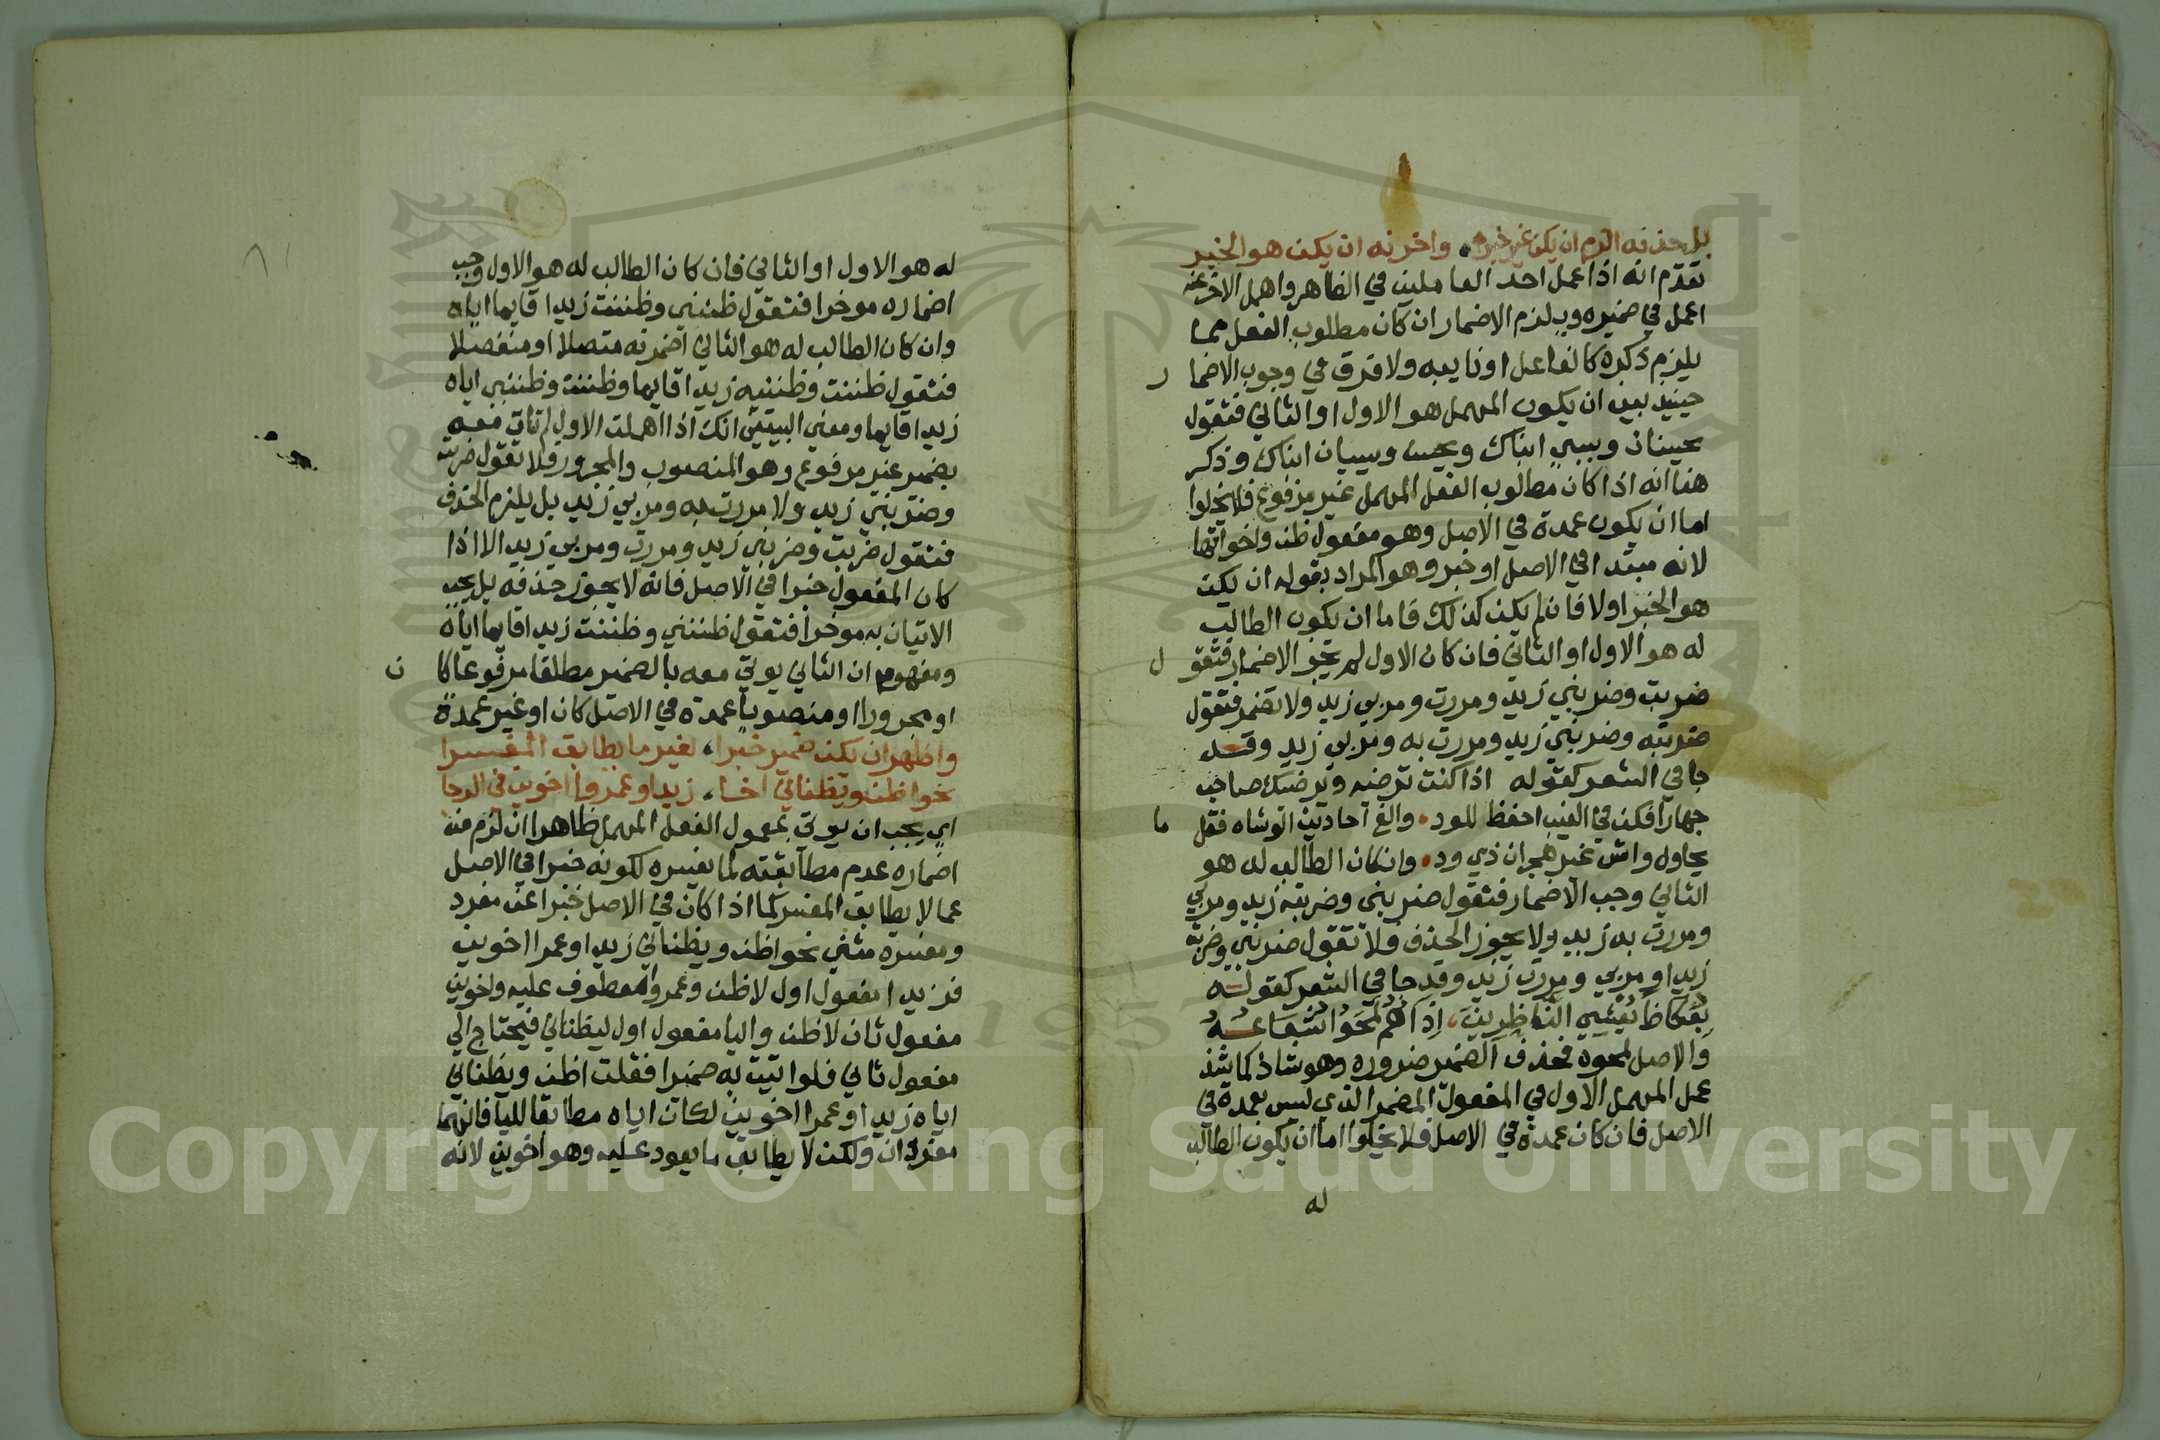 بل حذفه الزم ان يكن غير خبر، واخرنه ان يكن هو الخبر
تقدم انه اذا عمل احد العاملين في الظاهر واهمل الاخر عنه
اعمل في ضميره ويلزم الاضمار ان كان مطلوب الفعل مما
يلزم ذكره كالفاعل او نايبه ولا فرق في وجوب الاضما ر
حينيد بين ان يكون المهمل هو الاول او الثاني فتقول
يحسنان ويسي ابناك ويحسن ويسيان ابناك وذكر
هنا انه اذا كان مطلوب الفعل المهمل غير مرفوع فلا يخلوا
اما ان يكون عمدة في الاصل وهو مفعول ظن واخواتها
لانه مبتدا في الاصل او خبر وهو المراد بقوله ان يكن
هو الخبر اولا فان لم يكن كذلك فاما ان يكون الطالب
له هو الاول او الثاني فان كان الاول لم يجز الاضمار فتقو ل
ضربت وضربني زيد ومررت ومر بي زيد ولا تضمر فتقول
ضربته وضربني زيد ومررت به ومر بي زيد وقد
جا في الشعر كقوله اذا كنت ترضيه ويرضيك صاحب
جهارا فكن في الغيب احفظ للود، والغ احاديث الوشاه فقل ما
يحاول واش غير هجران ذي ود، وان كان الطالب له هو
الثاني وجب الاضمار فتقول ضربني وضربته زيد ومر بي
ومررت به زيد ولا يجوز الحذف فلا تقول ضربني وضربت
زيد او مر بي ومررت زيد وقد جا في الشعر كقوله
بعكاظ يُعشي الناظرين، إذا هُمُ لمحوا شُعَاعُهُ
والاصل لمحوه فحذف الضمير ضروره وهو شاذ كما شذ
عمل المهمل الاول في المفعول المضمر الذي ليس بعمدة في
الاصل فان كان عمدة في الاصل فلا يخلوا اما ان يكون الطالب
له
له هو الاول او الثاني فان كان الطالب له هو الاول وجب
اضماره موخرا فتقول ظنني وظننت زيدا قايما اياه
وان كان الطالب له هو الثاني اضمرته متصلا او منفصلا
فتقول ظننت وظننيه زيدا قايما وظننت وظنني اياه
زيدا قايما ومعني البيتين انك اذا اهملت الاول لم تات معه
بضمير غير مرفوع وهو المنصوب والمجرور فلا تقول ضربته
وضربني زيد ولا مررت به ومر بي زيد بل يلزم الحذف
فتقول ضربت وضربني زيد ومررت ومر بي زيد الا اذا
كان المفعول خبرا في الاصل فانه لا يجوز حذفه بل يجب
الاتيان به موخرا فتقول ظنني وظننت زيدا قايما اياه
ومفهومه ان الثاني يوتي معه بالضمير مطلقا مرفوعا كا ن
او مجرورا او منصوبا عمدة في الاصل كان او غير عمدة
واظهر ان يكن ضمير خبرا، لغير ما يطابق المفسرا
نحو اظن ويظناني اخا، زيدا وعمروا اخوين في الرخا
اي يجب ان يوتي بمفعول الفعل المهمل ظاهرا ان لزم منه
اضماره عدم مطابقته لما يفسره لكونه خبرا في الاصل
عما لا يطابق المفسر كما اذا كان في الاصل خبرا عن مفرد
ومفسره مثني نحو اظن ويظناني زيدا وعمرا اخوين
فزيدا مفعول اول لاظن وعمروا معطوف عليه واخوين
مفعول ثان لاظن واليا مفعول اول ليظناني فيحتاج الي
مفعول ثاني فلو اتيت به ضميرا فقلت اظن ويظناني
اياه زيدا وعمرا اخوين لكان اياه مطابقا لليا فانهما
مفردان ولكن لا يطابق ما يعود عليه وهو اخوين لانه
Copyright © King Saud University
1957